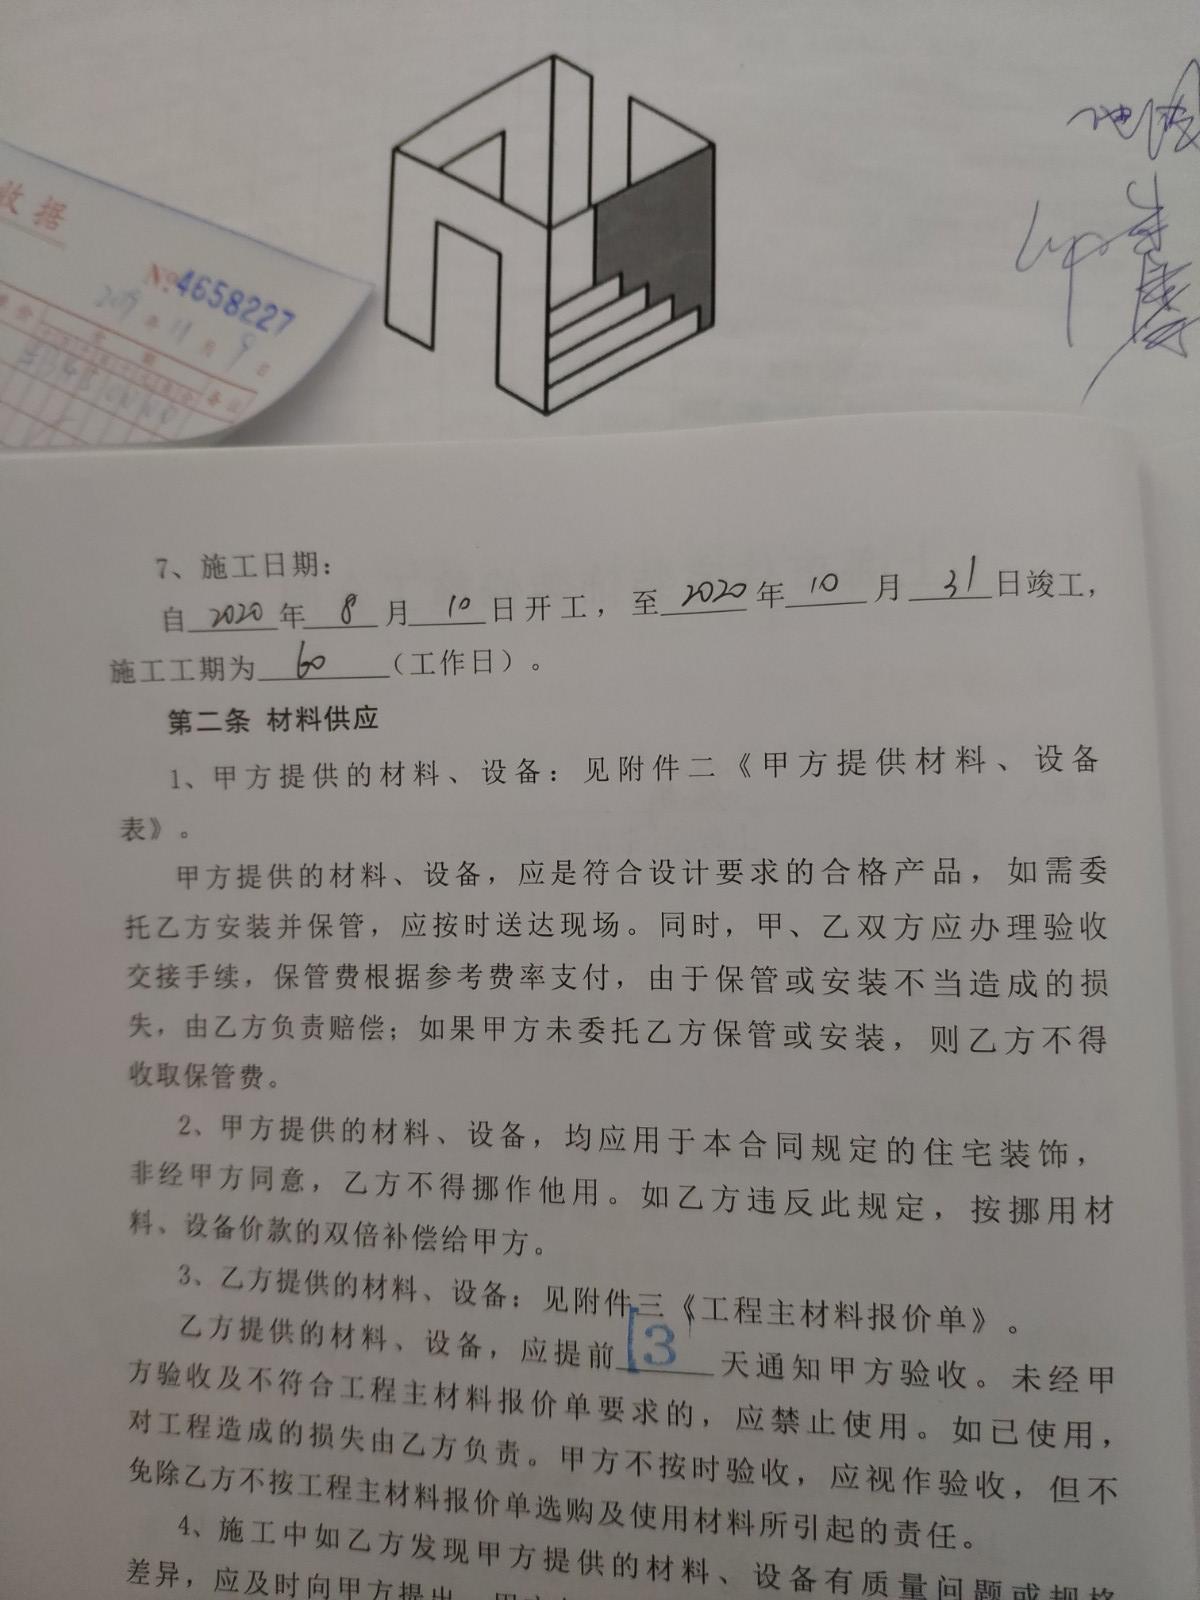 收据
№4658227
2019年11月9日
7、施工日期：
自2020年8月10日开工，至2020年10月31日竣工，
施工工期为60（工作日）。
第二条 材料供应
1、甲方提供的材料、设备：见附件二《甲方提供材料、设备
表》。
甲方提供的材料、设备，应是符合设计要求的合格产品，如需委
托乙方安装并保管，应按时送达现场。同时，甲、乙双方应办理验收
交接手续，保管费根据参考费率支付，由于保管或安装不当造成的损
失，由乙方负责赔偿；如果甲方未委托乙方保管或安装，则乙方不得
收取保管费。
2、甲方提供的材料、设备，均应用于本合同规定的住宅装饰，
非经甲方同意，乙方不得挪作他用。如乙方违反此规定，按挪用材
料、设备价款的双倍补偿给甲方。
3、乙方提供的材料、设备：见附件三《工程主材料报价单》。
乙方提供的材料、设备，应提前3天通知甲方验收。未经甲
方验收及不符合工程主材料报价单要求的，应禁止使用。如已使用，
对工程造成的损失由乙方负责。甲方不按时验收，应视作验收，但不
免除乙方不按工程主材料报价单选购及使用材料所引起的责任。
4、施工中如乙方发现甲方提供的材料、设备有质量问题或规格
差异，应及时向甲方提出